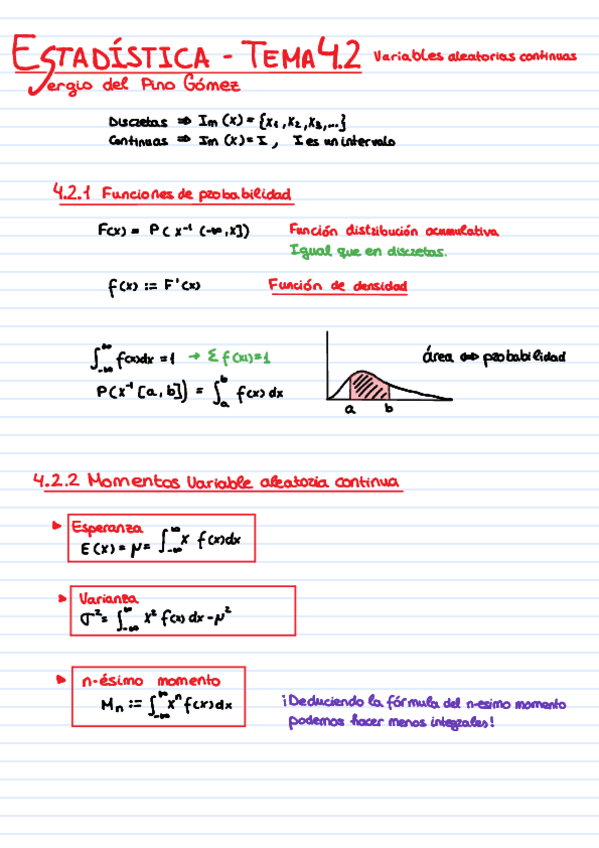 ESTADÍSTICA - TEMA 4.2 Variables aleatorias continuas
Sergio del Pino Gómez
Discretas ⇒ Im (X) = {X₁, X₂, X₃, ...}
Continuas ⇒ Im (X) = I, I es un intervalo
4.2.1 Funciones de probabilidad
F(x) = P( X⁻¹ (-∞, x]) Función distribución acumulativa
Igual que en discretas.
f(x) := F'(x) Función de densidad
∫_{-∞}^{∞} f(x)dx = 1 → Σ f(xi) = 1
área ⇔ probabilidad
P(X⁻¹ [a, b]) = ∫_a^b f(x) dx
a b
4.2.2 Momentos Variable aleatoria continua
▸ Esperanza
E(X) = μ = ∫_{-∞}^{∞} x f(x)dx
▸ Varianza
σ² = ∫_{-∞}^{∞} x² f(x) dx - μ²
▸ n-ésimo momento
Mₙ := ∫_{-∞}^{∞} xⁿ f(x) dx
¡Deduciendo la fórmula del n-esimo momento
podemos hacer menos integrales!